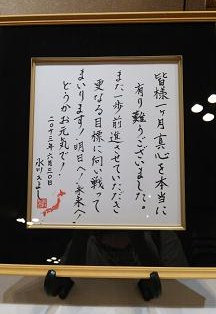 皆様一ヶ月真心を本当に
有り難うございました。
また一歩前進させていただき
更なる目標に向い戦って
まいります！明日へ！未来へ！
どうかお元気で！
二〇十三年六月三〇日
氷川きよし